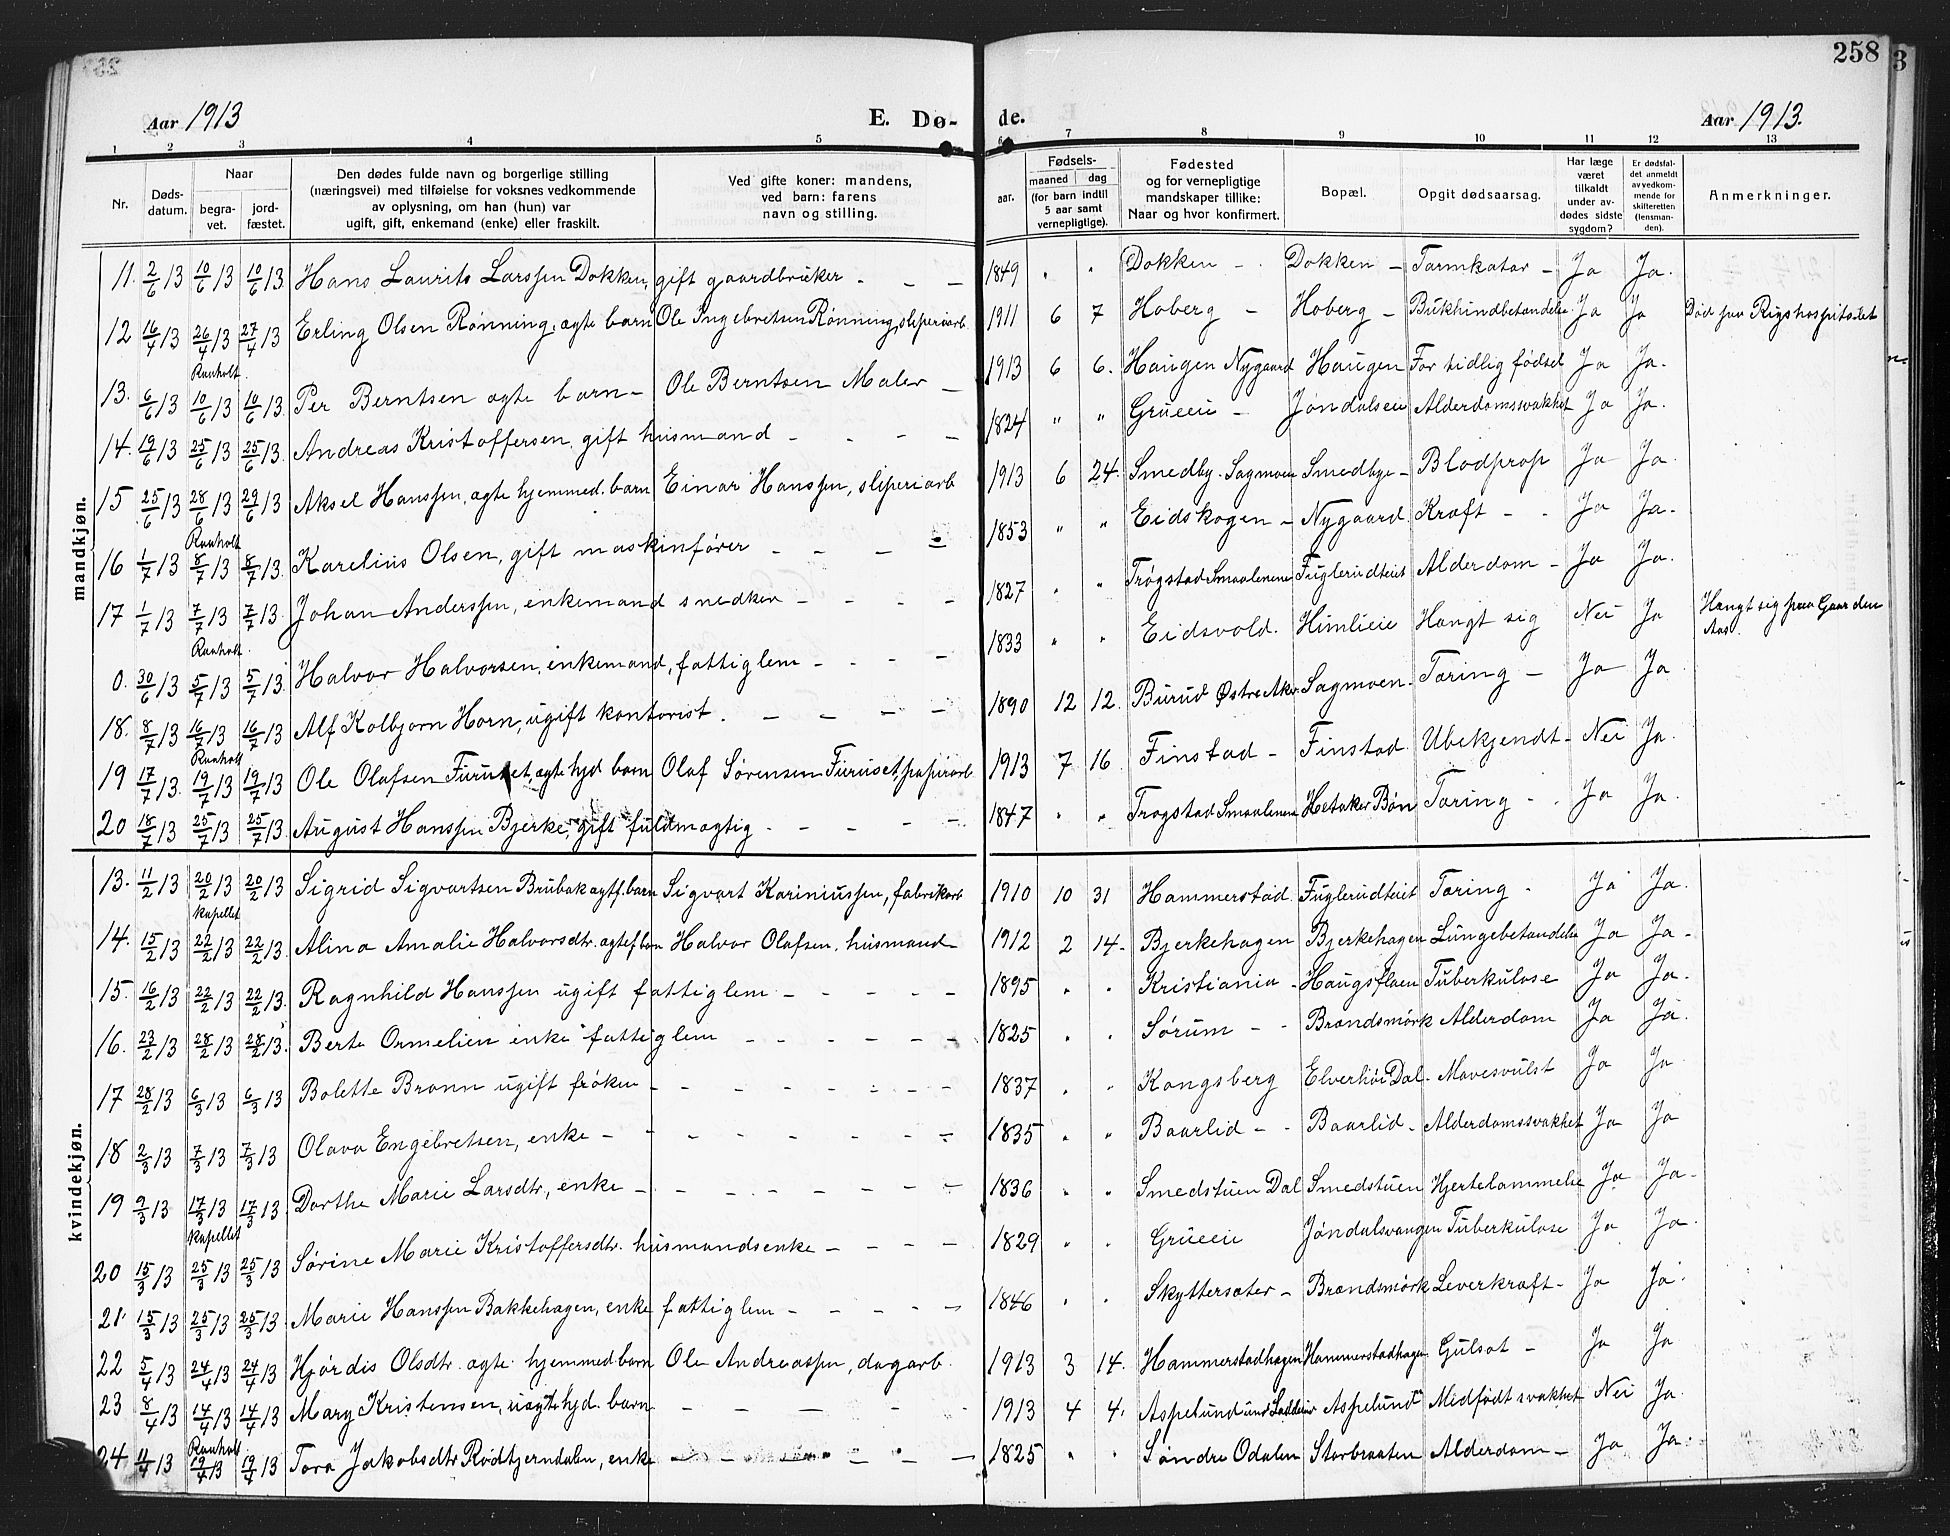 258
Aar 1913 E. Dø- de. Aar 1913.
1 2 3 4 5 6 7 8 9 10 11 12 13
Nr.
Døds-datum.
Naar
begra-vet.
jord-fæstet.
Den dødes fulde navn og borgerlige stilling
(næringsvei) med tilføielse for voksnes vedkommende
av oplysning, om han (hun) var
ugift, gift, enkemand (enke) eller fraskilt.
Ved gifte koner: mandens,
ved barn: farens
navn og stilling.
aar.
Fødsels-
maaned dag
(for barn indtil
5 aar samt
vernepligtige).
Fødested
og for vernepligtige
mandskaper tillike:
Naar og hvor konfirmert.
Bopæl.
Opgit dødsaarsag.
Har læge
været
tilkaldt
under av-
dødes sidste
sygdom?
Er dødsfal-
det anmeldt
av vedkom-
mende for
skifteretten
(lensman-
den).
Anmerkninger.
mandkjøn.
11. 2/6 13 10/6 13 10/6 13 Hans Laurits Larssen Dokken, gift gaardbruker - - - 1849 " " Dokken - Dokken - Tarmkatar - Ja Ja.
12 16/4 13 26/4 13 27/4 13 Erling Olsen Rønning, ægte barn Ole Ingebretsen Rønning, sliperiarb. 1911 6 7 Hoberg - Hoberg - Bukhindbetændelse Ja Ja Død paa Rigshospitalet
Raaholt.
13. 6/6 13 10/6 13 10/6 13 Per Berntsen ægte barn - Ole Berntsen Maler - 1913 6 6. Haugen Nygaard Haugen For tidlig fødsel Ja Ja.
14. 19/6 13 25/6 13 25/6 13. Andreas Kristoffersen, gift husmand - - - - 1824 " " Grueeie - Jøndalseie Alderdomssvakhet Ja Ja.
15 25/6 13 28/6 13 29/6 13 Aksel Hanssen, ægte hjemmed. barn Einar Hanssen, sliperiarb 1913 6 24. Smedby. Sagmoen Smedbye - Blodprop Ja Ja.
Raaholt
16 1/7 13 8/7 13 8/7 13. Karelius Olsen, gift maskinfører - - - - 1853 " " Eidskogen - Nygaard Kræft - - Ja Ja.
17 1/7 13 7/7 13 7/7 13. Johan Anderssen, enkemand snedker - - - - 1827 " " Trøgstad Smaalenene Fuglerudteiet Alderdom - Ja Ja.
Raaholt.
0. 30/6 13 5/7 13 5/7 13. Halvor Halvorsen, enkemand, fattiglem - - - - 1833 " " Eidsvold. Himlieie Hængt sig Nei Ja Hængt sig paa Gaarden Aas.
18. 8/7 13 16/7 13 16/7 13 Alf Kolbjørn Horn, ugift kontorist. - - - - 1890 12 12. Burud Østre Aker Sagmoen. Tæring - Ja Ja.
Raaholt
19 17/7 13. 19/7 13 19/7 13 Ole Olafsen Furuset, ægte hjd barn Olaf Sørensen Furuset, papirarb 1913 7 16 Finstad - Finstad Ubekjendt - Nei Ja.
20 18/7 13 25/7 13 25/7 13. August Hanssen Bjerke, gift fuldmægtig - - - - 1847 " " Trøgstad Smaalenene Hetaker Bøn Tæring - . Ja Ja.
kvindekjøn.
13. 11/2 13 20/2 13 20/2 13 Sigrid Sigvartsen Brubak ægtf. barn Sigvart Kariniussen, fabrikarb 1910 10 31 Hammerstad Fuglerudteiet Tæring - Ja Ja.
Kapellet
14. 15/2 13 22/2 13 22/2 13 Alina Amalie Halvorsdtr. ægtef barn Halvor Olafsen, husmand - 1912 2 14. Bjerkehagen Bjerkehagen Lungebetændelse Ja Ja -
15. 16/2 13 22/2 13 22/2 13. Ragnhild Hanssen ugift fattiglem - - - - 1895 " " Kristiania - Haugsflaen Tuberkulose Ja Ja.
16. 23/2 13 28/2 13 28/2 13. Berte Ormelien enke fattiglem - - - - 1825 " " Sørum - - Brandsmørk Alderdom Ja Ja.
17 28/2 13 6/3 13 6/3 13 Bolette Brann ugift frøken - - - - - 1837 " " Kongsberg Elverhøi Dal - Mavesvulst Ja Ja
18 2/3 13 7/3 13 7/3 13 Olava Engebretsen, enke - - - - - - 1835 " " Baarlid - - Baarlid - Alderdomssvakhet Ja Ja
19 9/3 13 17/3 13 17/3 13 Dorthe Marie Larsdtr, enke - - - - - - 1836 " " Smedstuen Dal Smedstuen Hjertelammelse Ja Ja -
Kapellet
20 15/3 13 25/3 13 25/3 13 Sørine Marie Kristoffersdtr. husmandsenke - - - - 1829 " " Grueeie Jøndalsvangen Tuberkulose Ja Ja.
21. 15/3 13 25/3 13 25/3 13 Marie Hanssen Bakkehagen, enke fattiglem - - - - 1846 " " Skyttersæter - Brandsmørk Leverkræft - Ja Ja.
22 5/4 13 24/4 13 24/4 13 Hjørdis Olsdtr. ægte hjemmed barn Ole Andreassen, dagarb. 1913 3 14. Hammerstadhagen Hammerstadhagen Gulsot - Ja Ja
23 8/4 13 14/4 13 14/4 13 Mary Kristensen, uægte hjd. barn - - - - - 1913 4 4. Aspelund und Ladderud Aspelund Midfødt svakhet Nei Ja.
Raaholt
24 11/4 13 19/4 13 19/4 13 Tora Jakobsdtr Rødtjerndalen, enke - - - - - 1825 " " Søndre Odalen Storbraaten Alderdom - Ja Ja.